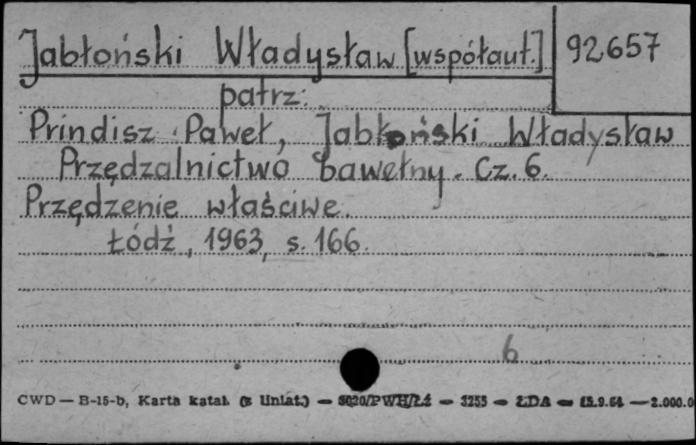 Jabłoński Władysław [współaut.] 92657
patrz:
Prindisz Paweł, Jabłoński Władysław
Przędzalnictwo bawełny. Cz. 6.
Przędzenie właściwe.
Łódź, 1963, s. 166.
6
CWD — B-15-b, Karta katal. (z liniat.) — /PWH/Łź — 3255 — ŁDA — 15.9.64 — 2.000.0